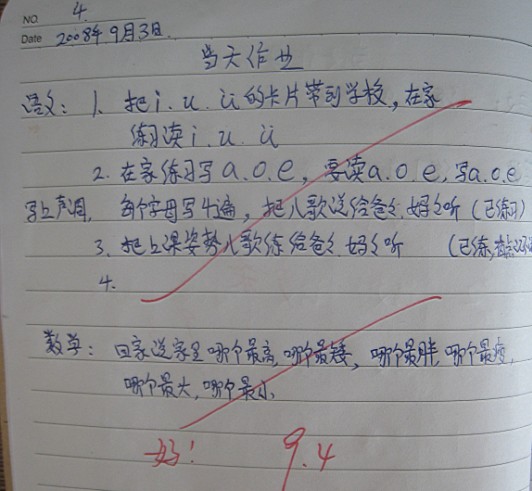 NO. 4.
Date 2008年9月3日.
当天作业
语文: 1. 把i. u. ü的卡片带到学校, 在家
练习读i. u. ü
2. 在家练习写a.o.e, 要读a.o.e, 写a.o.e
写上声调, 每个字母写4遍, 把儿歌说给爸々.妈々听 (已练习)
3. 把上课姿势儿歌练给爸々.妈々听 (已练,
4.
数学: 回家说家里哪个最高,哪个最矮, 哪个最胖,哪个最瘦,
哪个最大,哪个最小.
好! 9.4